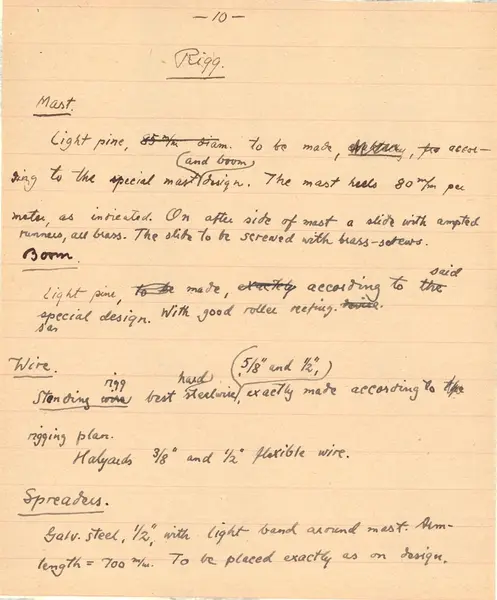 — 10 —
Rigg.
Mast.
Light pine, 85 m/m diam. to be made, accor-
(and boom)
ding to the special mast design. The mast heels 80 m/m per
meter, as indicated. On after side of mast a slide with ampted
runners, all brass. The slide to be screwed with brass-screws.
Boom
said
Light pine, to be made, exactly according to the
special design. With good roller reefing. device.
Wire.
rigg hard (5/8" and 1/2",)
Standing wire best steelwire, exactly made according to the
rigging plan.
Halyards 3/8" and 1/2" flexible wire.
Spreaders.
Galv. steel, 1/2", with light band around mast.
length = 700 m/m. To be placed exactly as on design.